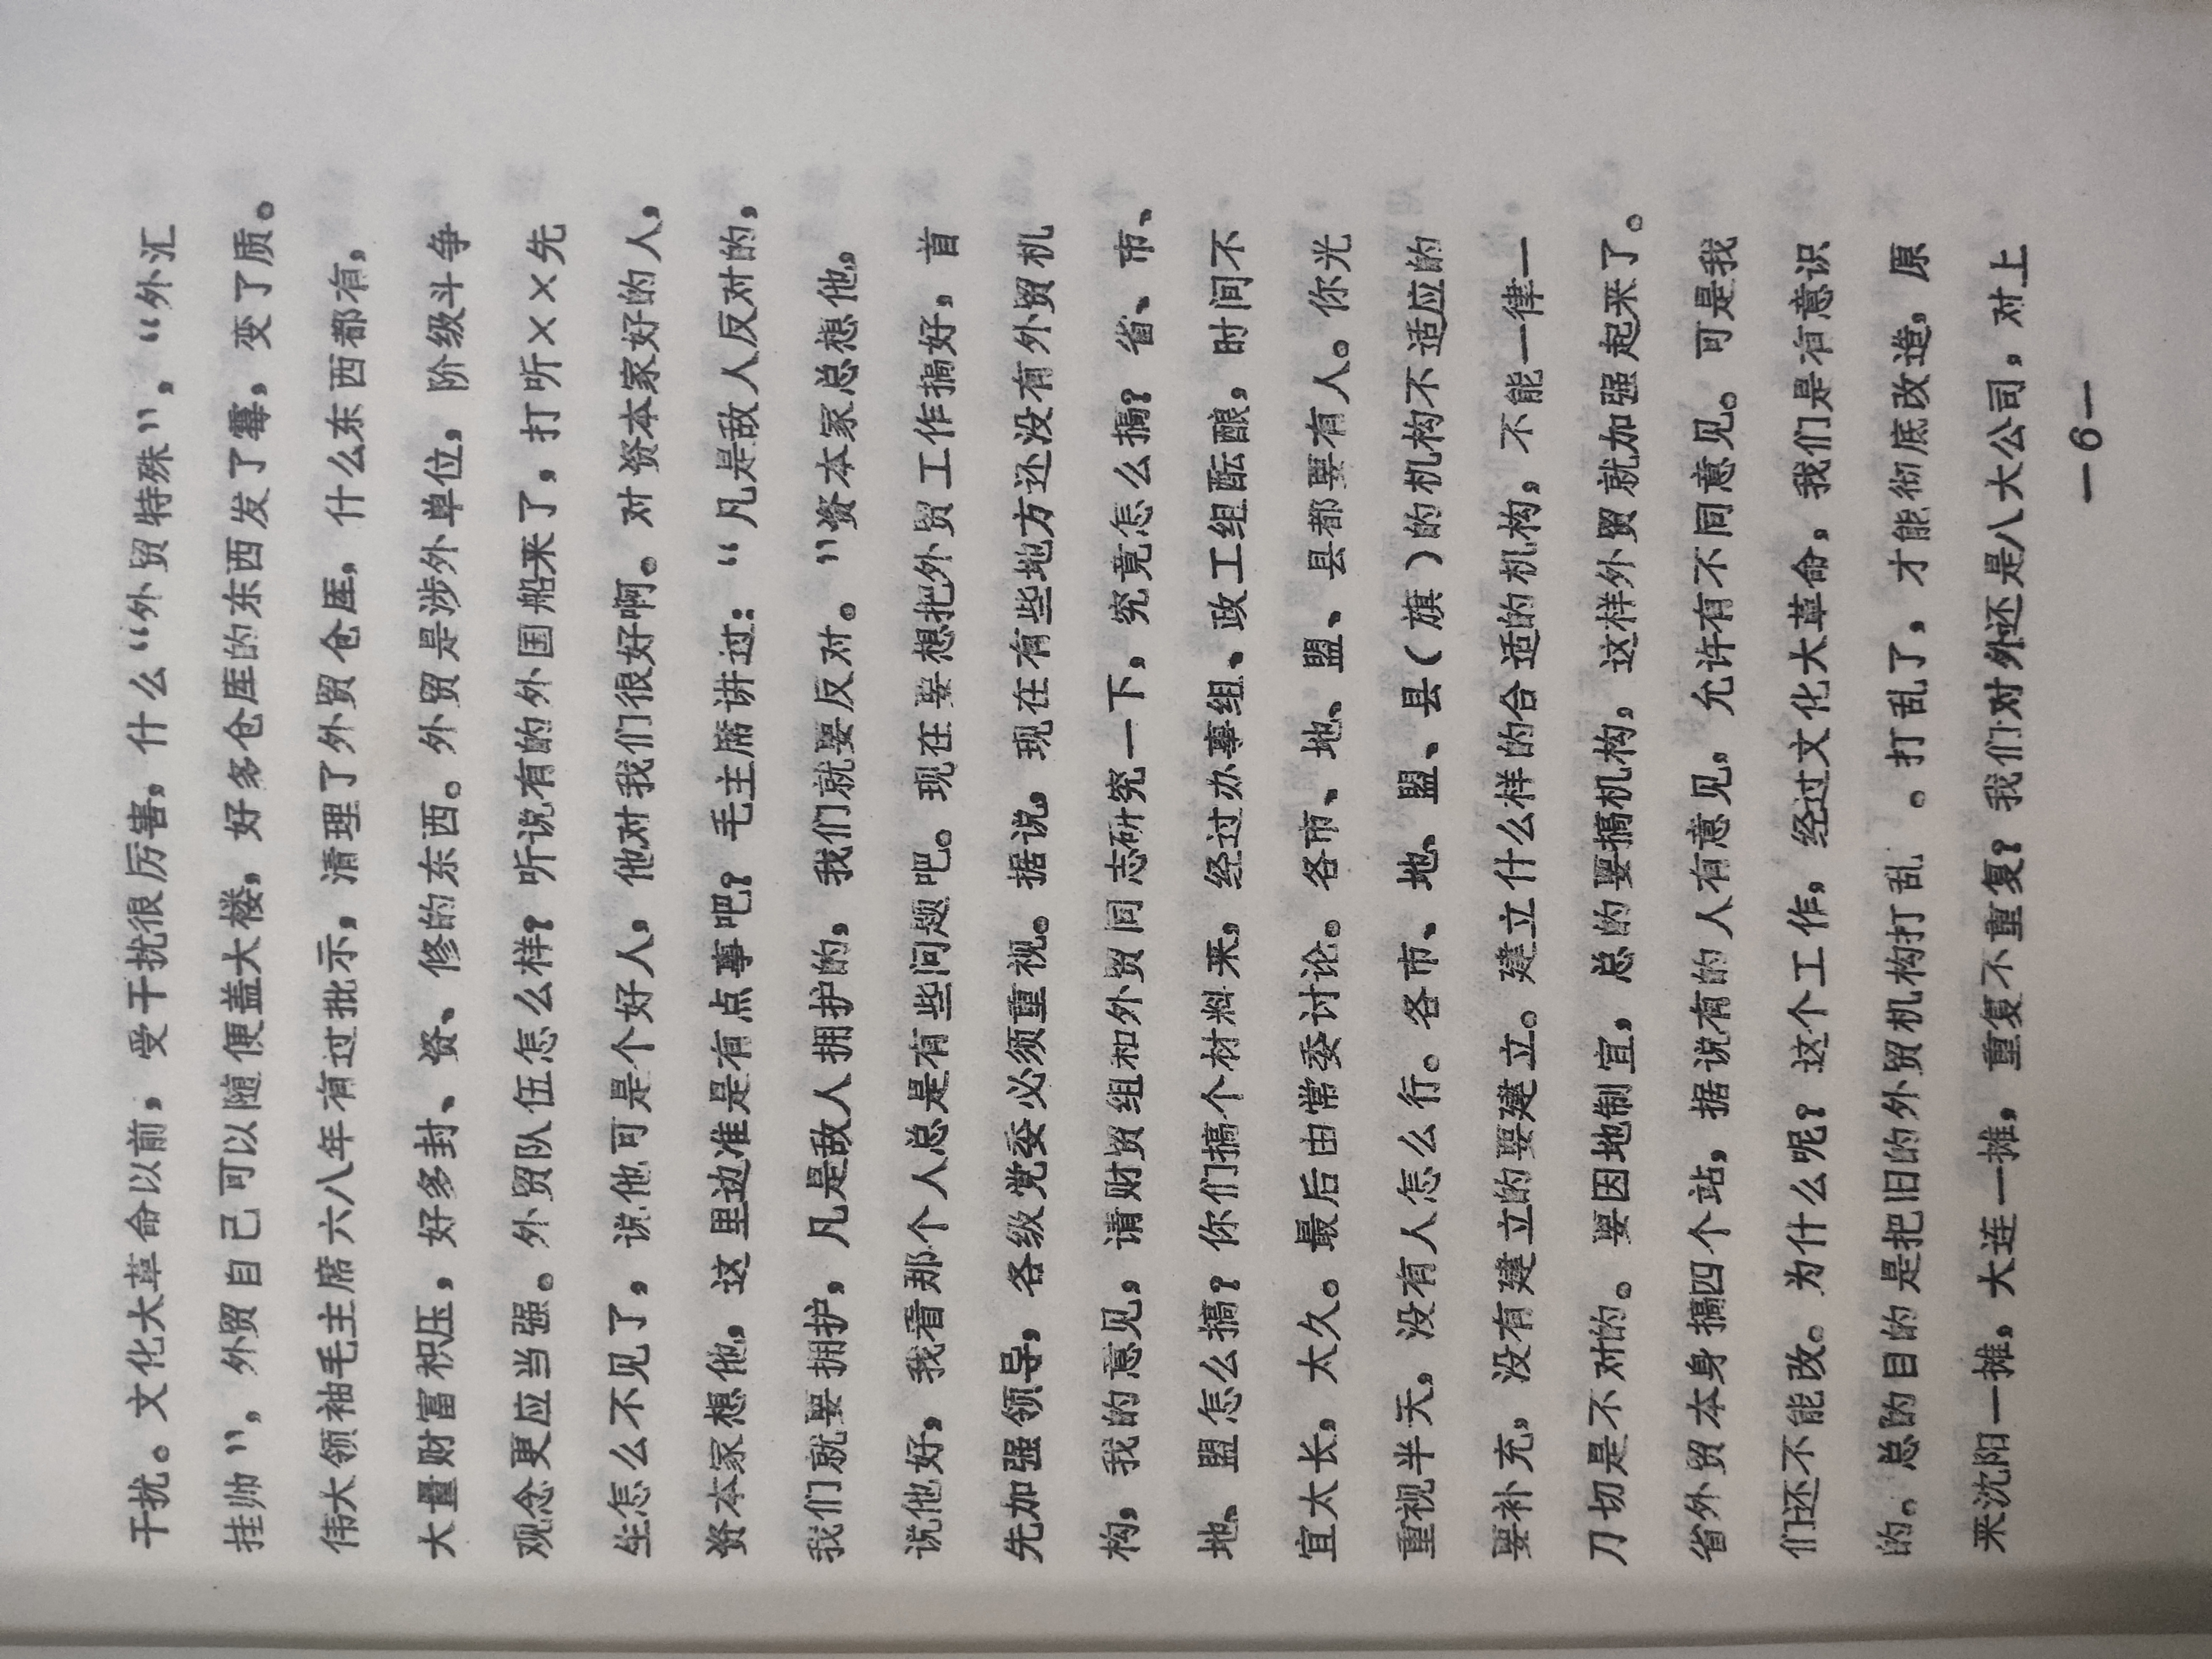 干扰。文化大革命以前，受干扰很厉害，什么“外贸特殊”，“外汇
挂帅”，外贸自己可以随便盖大楼，好多仓库的东西发了霉，变了质。
伟大领袖毛主席六八年有过批示，清理了外贸仓库，什么东西都有，
大量财富积压，好多封、资、修的东西。外贸是涉外单位，阶级斗争
观念更应当强。外贸队伍怎么样？听说有的外国船来了，打听××先
生怎么不见了，说他可是个好人，他对我们很好啊。对资本家好的人，
资本家想他，这里边准是有点事吧？毛主席讲过：“凡是敌人反对的，
我们就要拥护，凡是敌人拥护的，我们就要反对。”资本家总想他，
说他好，我看那个人总是有些问题吧。现在要想把外贸工作搞好，首
先加强领导，各级党委必须重视。据说，现在有些地方还没有外贸机
构，我的意见，请财贸组和外贸同志研究一下，究竟怎么搞？省、市、
地、盟怎么搞？你们搞个材料来，经过办事组、政工组酝酿，时间不
宜太长，太久。最后由常委讨论。各市、地、盟、县都要有人。你光
重视半天，没有人怎么行。各市、地、盟、县（旗）的机构不适应的
要补充，没有建立的要建立。建立什么样的合适的机构，不能一律一
刀切是不对的。要因地制宜，总的要搞机构，这样外贸就加强起来了。
省外贸本身搞四个站，据说有的人有意见，允许有不同意见。可是我
们还不能改。为什么呢？这个工作，经过文化大革命，我们是有意识
的。总的目的是把旧的外贸机构打乱 。打乱了，才能彻底改造，原
来沈阳一摊，大连一摊，重复不重复？我们对外还是八大公司，对上
—6—